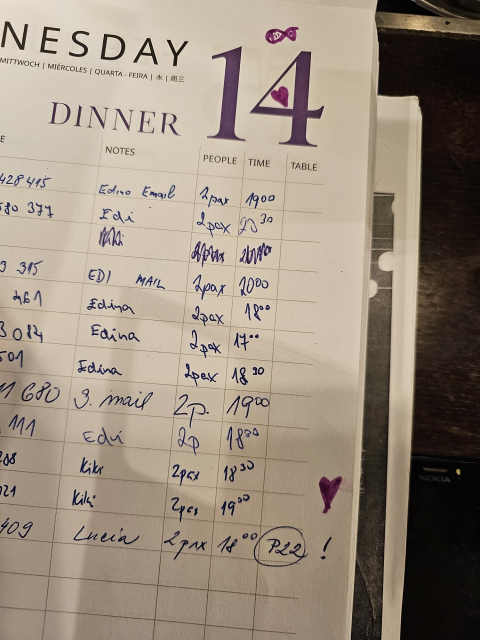 NESDAY
MITTWOCH | MIÉRCOLES | QUARTA-FEIRA | 水 | 周三
14
DINNER
E NOTES PEOPLE TIME TABLE
428 415 Edina Email 2pax 19⁰⁰
580 377 Edi 2pax 20³⁰
3 315 EDI MAIL 2pax 20⁰⁰
461 Edina 2pax 18⁰⁰
3 014 Edina 2pax 17⁰⁰
501 Edina 2pax 18³⁰
11 680 J. mail 2p. 19⁰⁰
111 Edi 2p 18³⁰
288 Kiki 2pax 18³⁰
021 Kiki 2pax 19³⁰
409 Lucia 2pax 18⁰⁰ P22 !
NOKIA